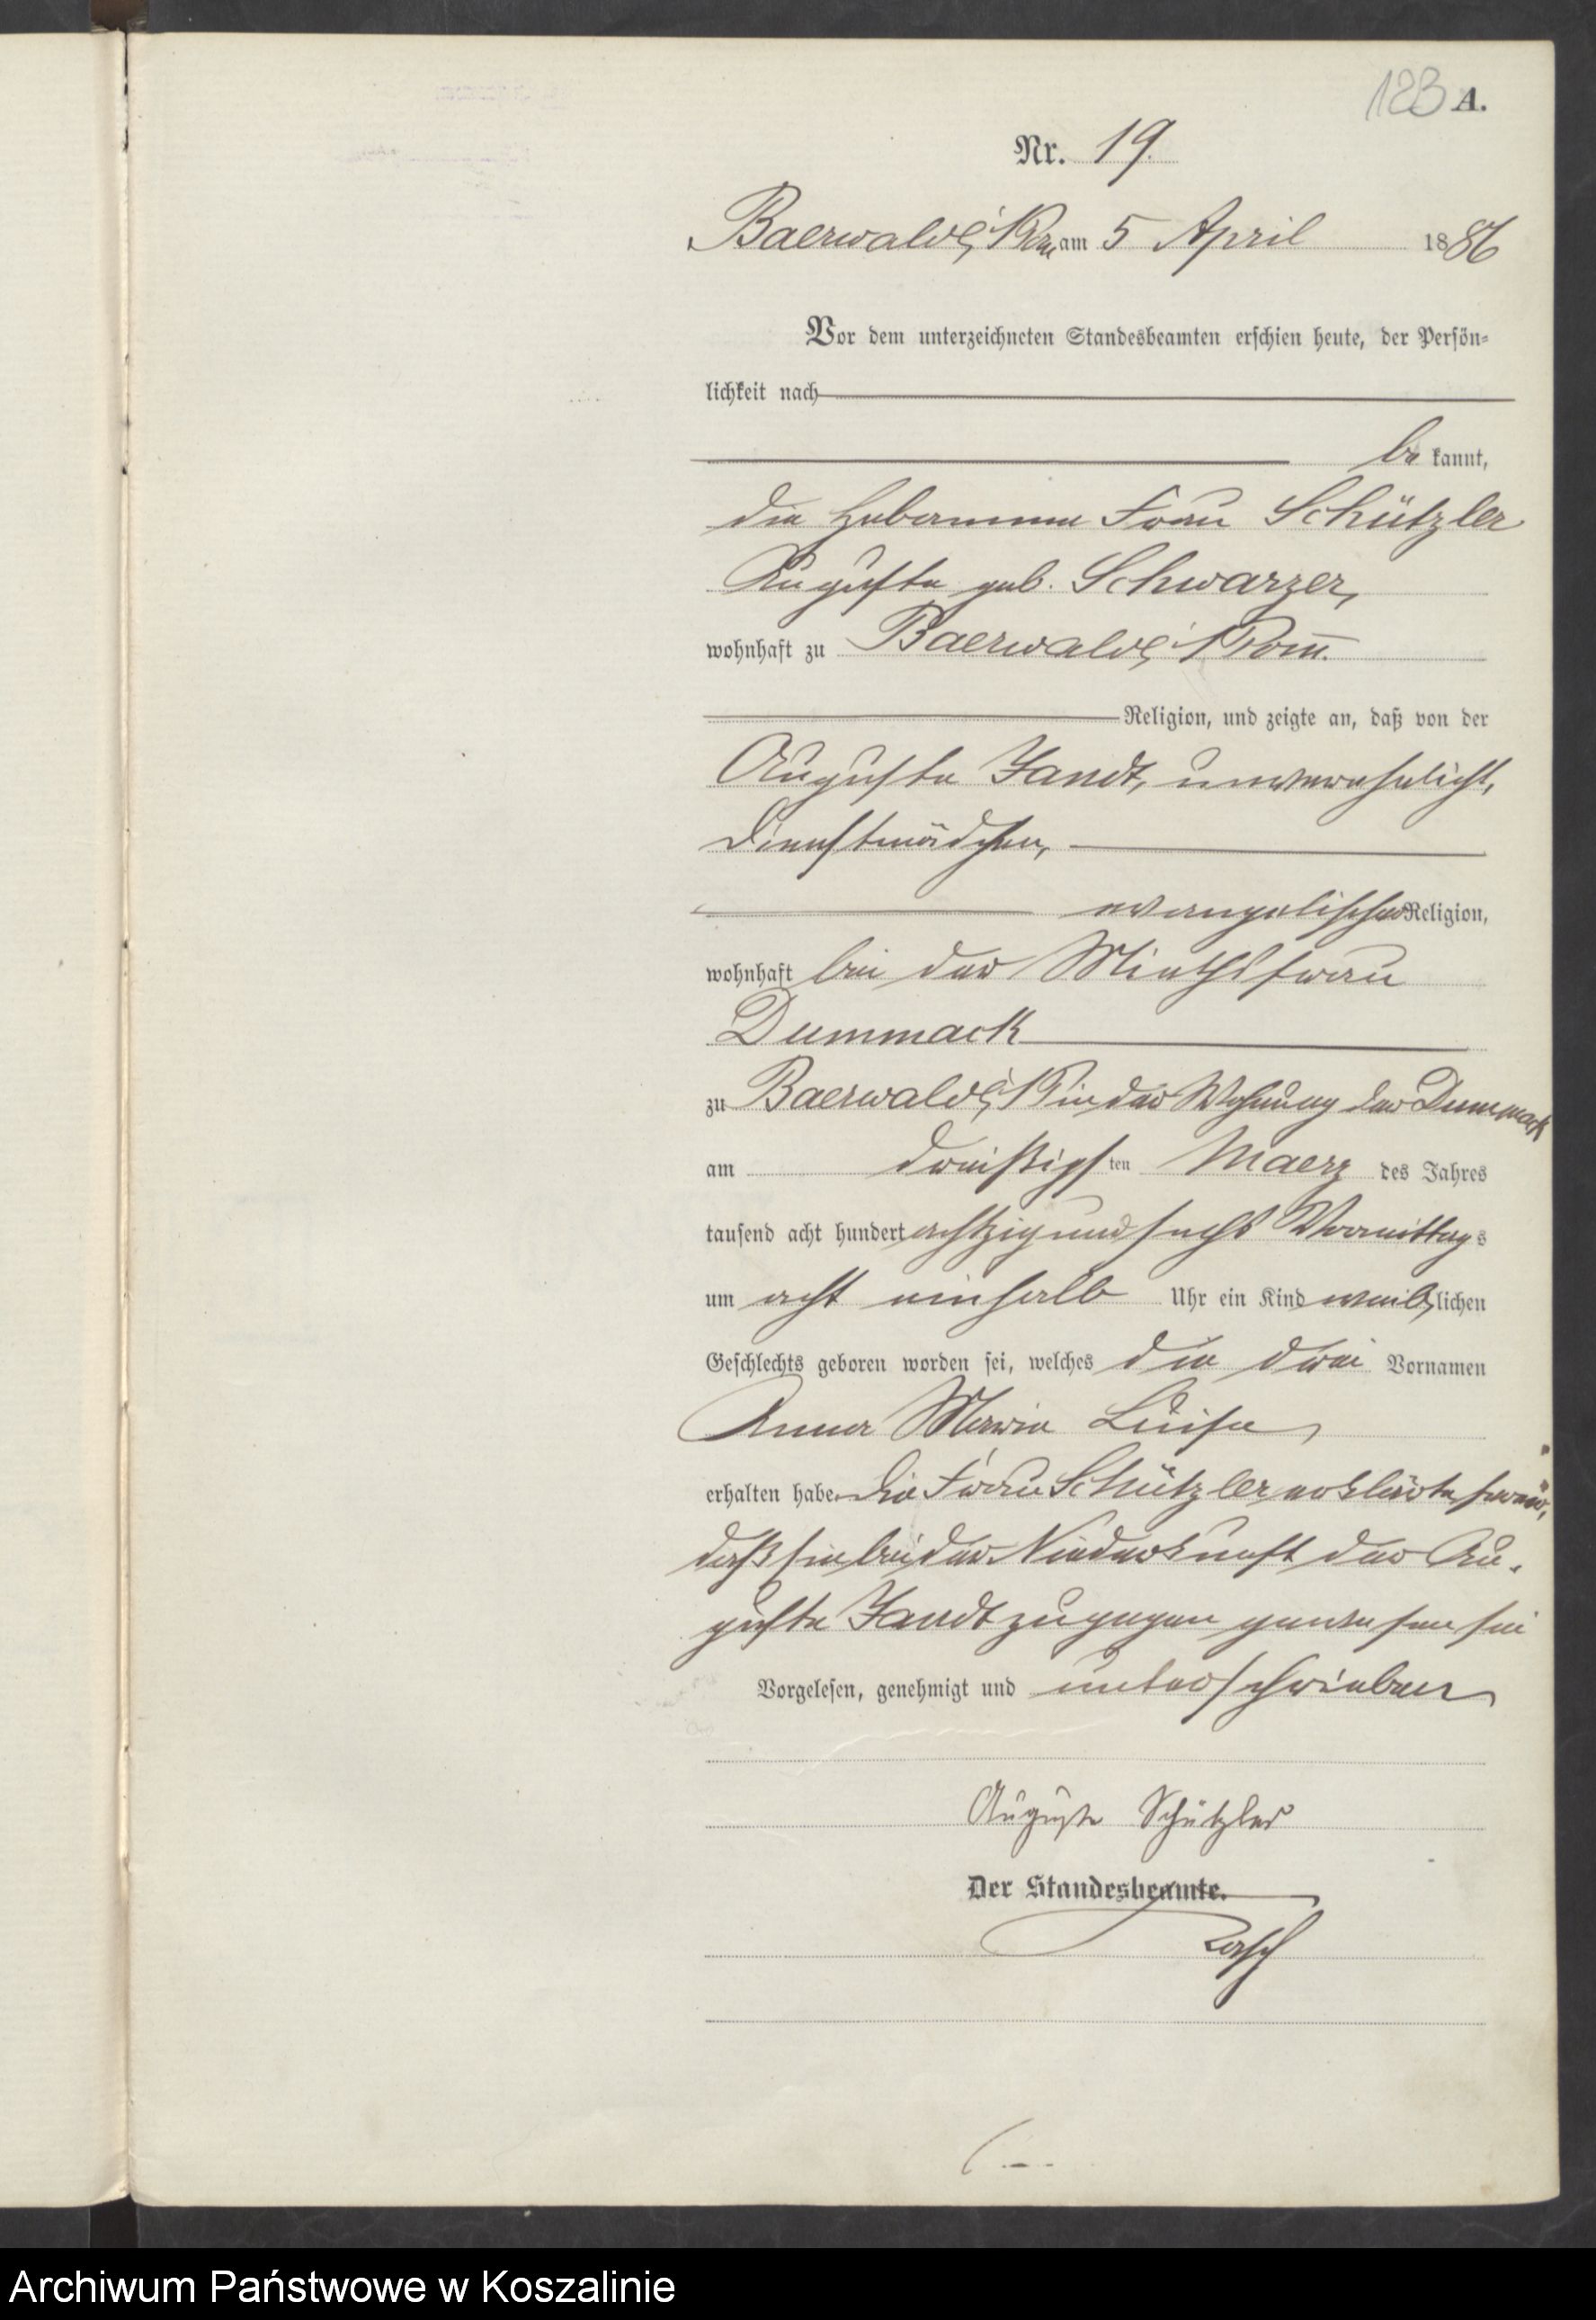 123 A.
Nr. 19.
Baerwald i/Pom am 5 April 1886
Vor dem unterzeichneten Standesbeamten erschien heute, der Persön-
lichkeit nach
be kannt,
die Hebamme Frau Schützler
Auguste geb. Schwarzer,
wohnhaft zu Baerwald i/Pom.
Religion, und zeigte an, daß von der
Auguste Jandt, unverehelicht,
Dienstmädchen,
evangelischer Religion,
wohnhaft bei der Miethsfrau
Dummack
zu Baerwald i/P in der Wohnung der Dummack
am dreißigsten Maerz des Jahres
tausend acht hundert achtzig und sechs Vormittags
um acht einhalb Uhr ein Kind weiblichen
Geschlechts geboren worden sei, welches die drei Vornamen
Anna Maria Luise
erhalten habe. Die Frau Schützler erklärte ferner,
daß sie bei der Niederkunft der Au-
guste Jandt zugegen gewesen sei
Vorgelesen, genehmigt und unterschrieben
Auguste Schützler
Der Standesbeamte.
Archiwum Państwowe w Koszalinie